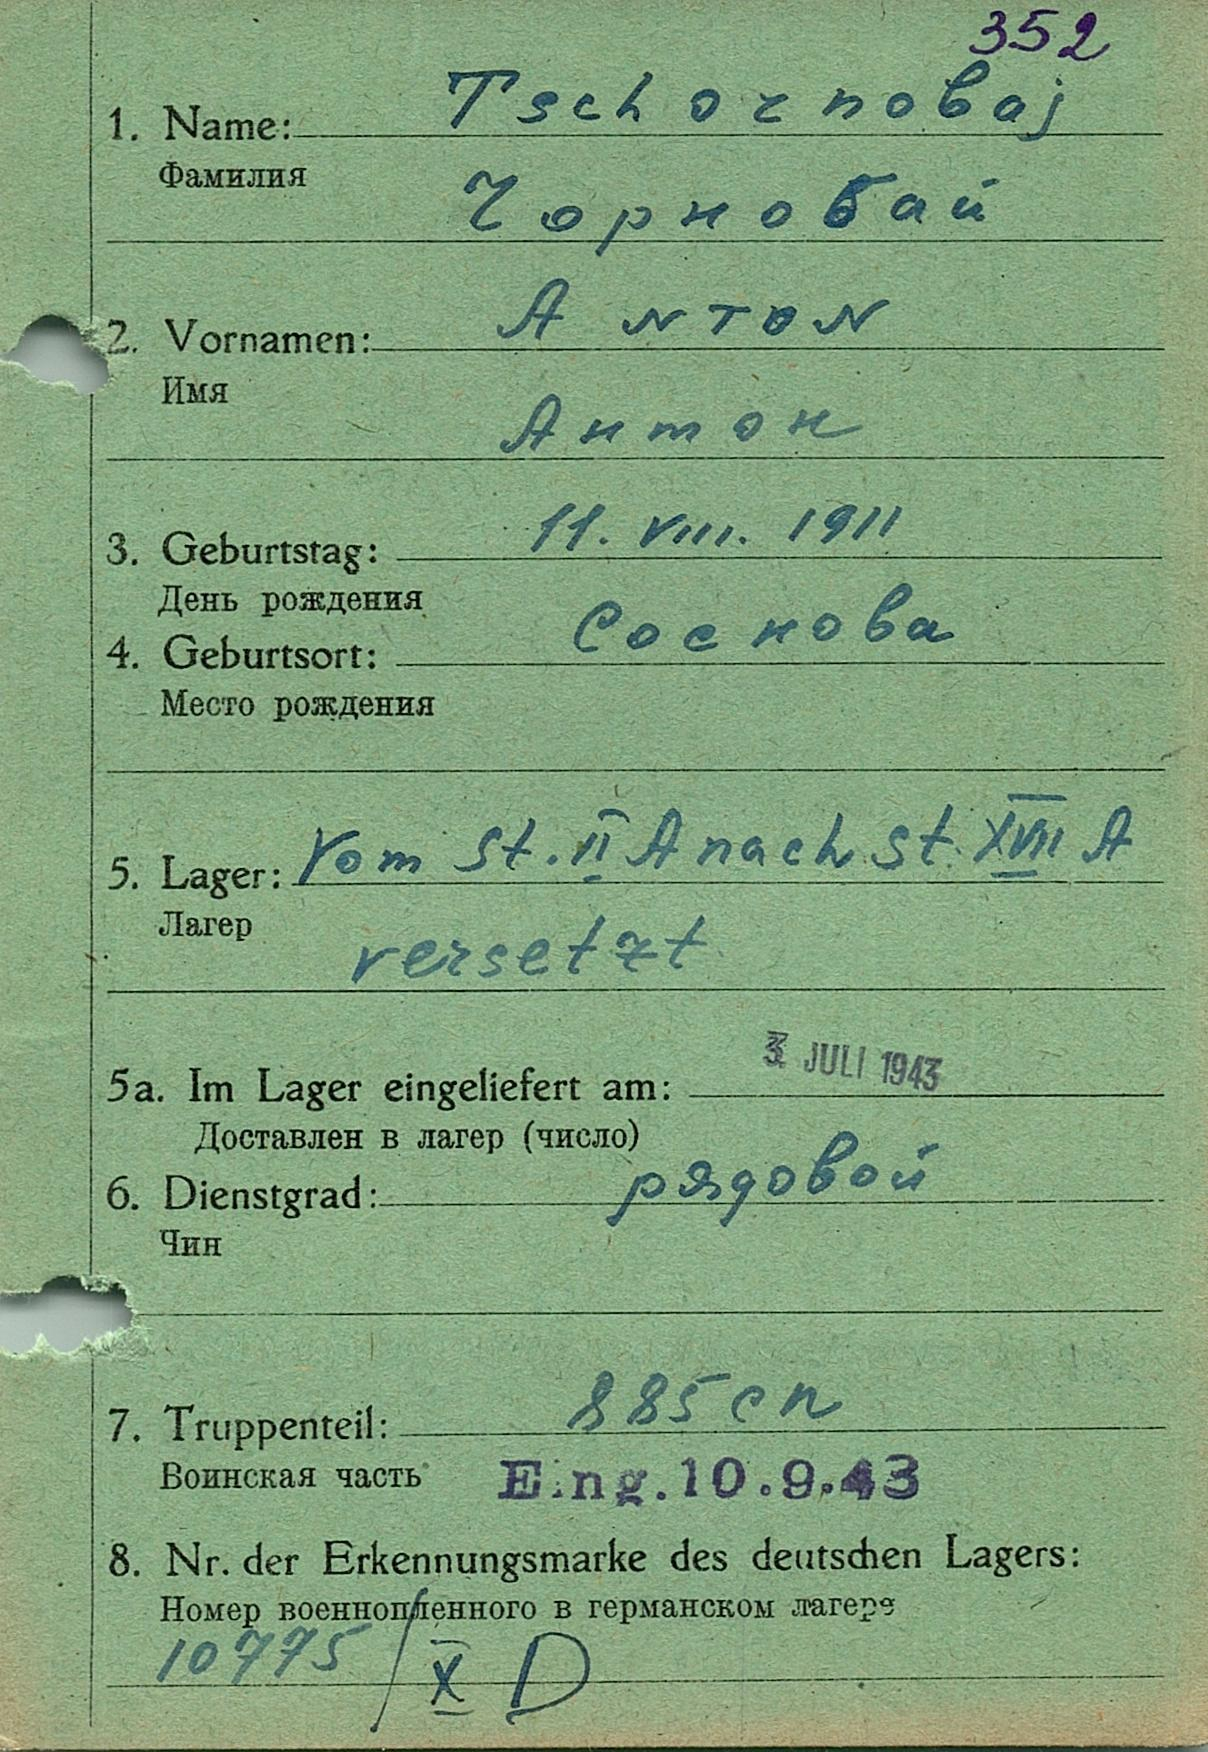 352
1. Name: Tschornobaj
Фамилия
Чорнобай
2. Vornamen: Anton
Имя
Антон
3. Geburtstag: 11. VIII. 1911
День рождения
4. Geburtsort: Соснова
Место рождения
5. Lager: Vom St. II A nach St. XVIII A
Лагер
versetzt
3. JULI 1943
5a. Im Lager eingeliefert am:
Доставлен в лагер (число)
6. Dienstgrad: рядовой
Чин
7. Truppenteil: 885 сп
Воинская часть
Eing. 10.9.43
8. Nr. der Erkennungsmarke des deutschen Lagers:
Номер военнопленного в германском лагере
10775 / X D